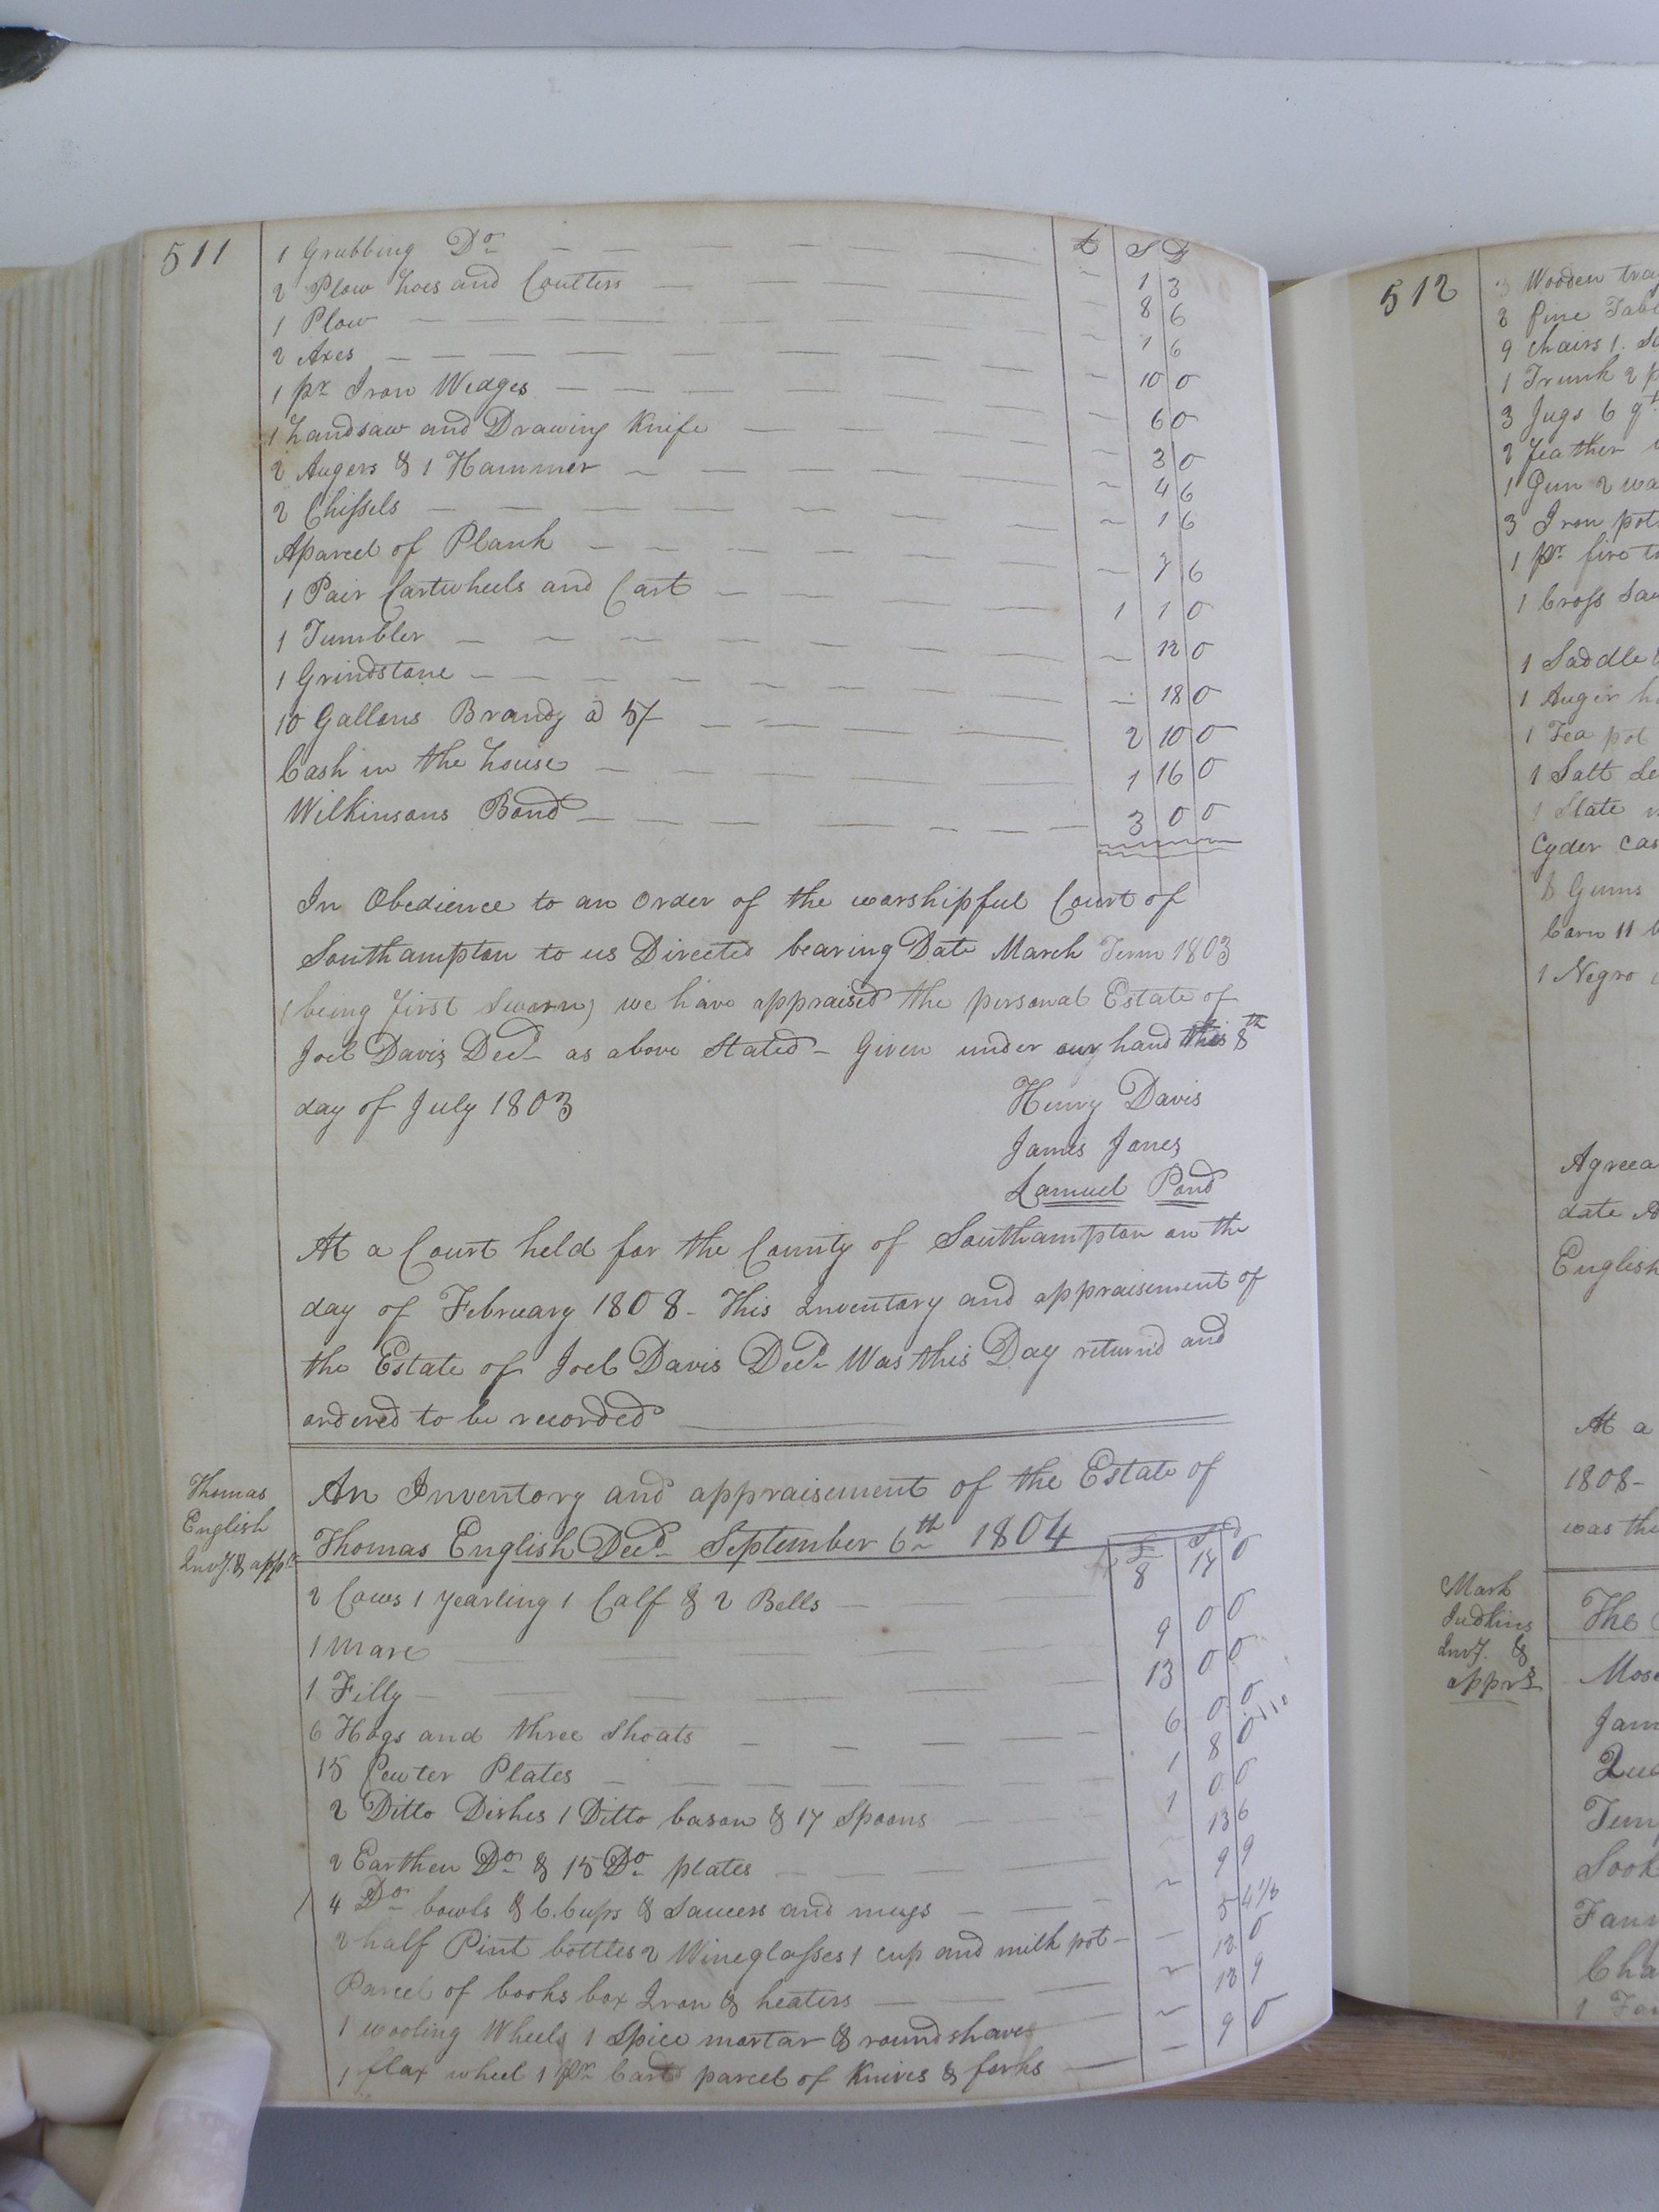 511
£ S D
1 Grubbing Do — 1 3
2 Plow hoes and Coulters — 8 6
1 Plow — 1 6
2 Axes — 10 0
1 pr Iron Wedges — 6 0
1 handsaw and Drawing Knife — 3 0
2 Augers & 1 Hammer — 4 6
2 Chissels — 1 6
A parcel of Plank — 7 6
1 Pair Cartwheels and Cart — 1 1 0
1 Tumbler — 12 0
1 Grindstone — 18 0
10 Gallons Brandy @ 5/ — 2 10 0
Cash in the house — 1 16 0
Wilkinsons Bond — 3 0 0
In Obedience to an Order of the worshipful Court of
Southampton to us Directed bearing Date March Term 1803
(being first Sworn) we have appraised the personal Estate of
Joel Davis Decd as above Stated – Given under our hand this 8th
day of July 1803
Henry Davis
James Jones
Lamuel Pond
At a Court held for the County of Southampton on the
day of February 1808 – This Inventory and appraisement of
the Estate of Joel Davis Decd Was this Day returnd and
ordered to be recorded
Thomas
English
Invy. & appt
An Inventory and appraisement of the Estate of
Thomas English Decd September 6th 1804
£ S D
2 Cows 1 yearling 1 Calf & 2 Bells — 8 14 0
1 Mare — 9 0 0
1 Filly — 13 0 0
6 Hogs and three Shoats — 6 0 0
15 Pewter Plates — 1 8 0
2 Ditto Dishes 1 Ditto bason & 17 Spoons — 1 0 0
2 Earthen Do & 15 Do plates — 13 6
4 Do bowls & 6 Cups & Saucers and mugs — 9 9
2 half Pint bottles 2 Wineglasses 1 cup and milk pot — 5 4 1/2
Parcel of books box Iron & heaters — 12 0
1 wooling Wheels 1 Spice mortar & roundshaves — 12 9
1 flax wheel 1 pr Cards parcel of Knives & forks — 9 0
512
3 Wooden tray
2 Pine Tab
9 Chairs 1.
1 Trunk 2 p
3 Jugs 6
2 feather
1 Gun 2 wa
3 Iron pot
1 pr fire t
1 Cross Saw
1 Saddle &
1 Auger h
1 Tea pot
1 Salt
1 Slate
Cyder Cas
8 Gums
Corn 11
1 Negro
Agreea
date
English
At a
1808 –
was thi
Mark
Judkins
Invy. &
apprt
The
Mos
Jam
Tem
Fann
Cha